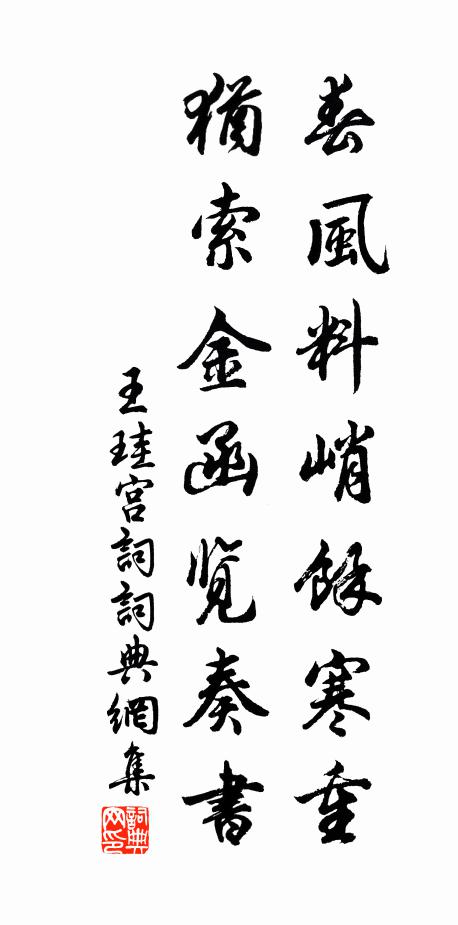 春風料峭餘寒重
猶索金函览奏書
王珪宫詞詞典網集
詞典网印